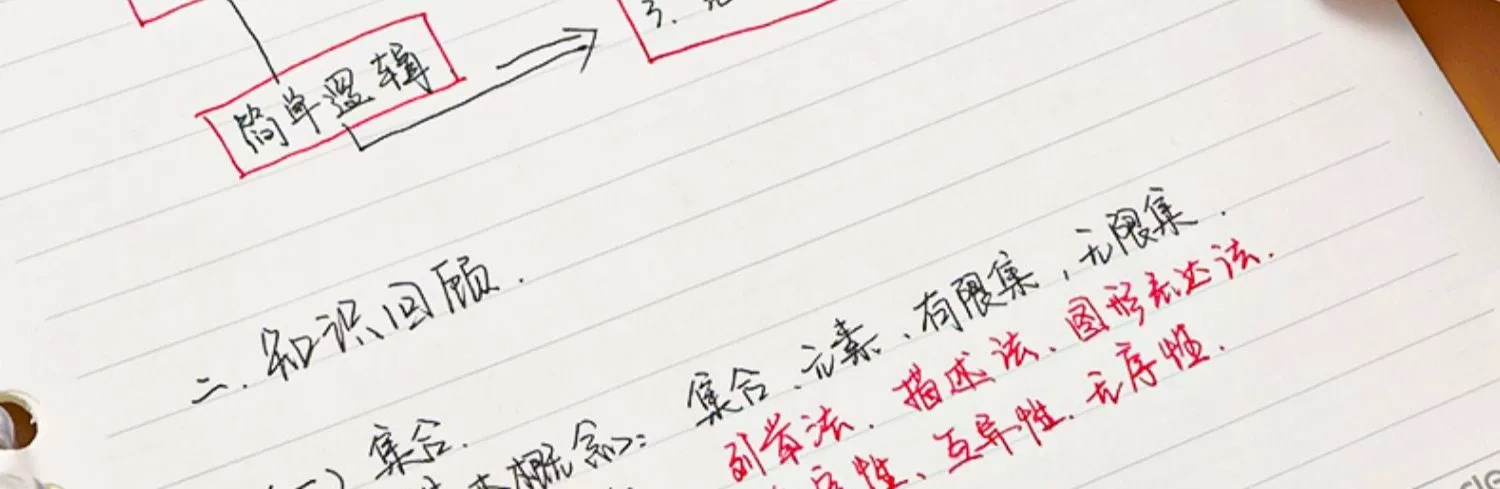 3.
简单逻辑
二.知识回顾.
集合.
本概念: 集合、元素、有限集,无限集.
列举法.描述法、图形表达法.
定性、互异性.无序性.